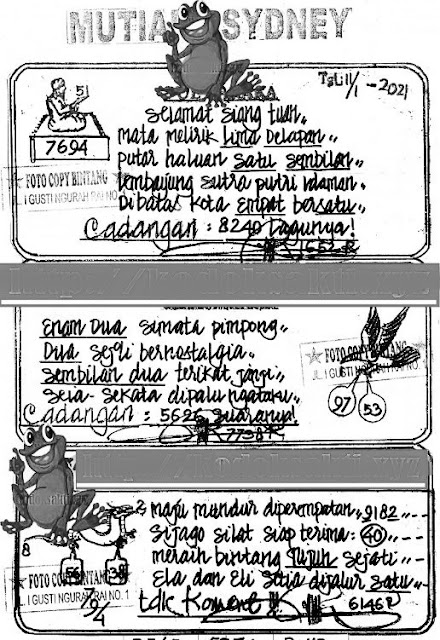 MUTIA SYDNEY
51
7694
Tgl 11/1 - 2021
Selamat siang tuan,,
mata melirik lima delapan,,
putar haluan satu sembilan,,
Lembayung sutra putri idaman,
Dibatas kota empat bersatu,
Cadangan : 8240 Dagunya!
1662 R
FOTO COPY BINTANG
I GUSTI NGURAH RAI NO.
Enam Dua simata pimpong,,
Dua sejoli bernostalgia,,
Sembilan dua terikat janji,,
Seia-Sekata dipalu ngataku,
Cadangan : 5626 Suaranya!
7738 R
FOTO COPY
JL. I GUSTI NGURAH RAI NO. 1
97
53
2 maju mundur diperempatan,,9182,,---
Sijago silat siap terima: 40,,---
meraih bintang tujuh sejati,,--
Ela dan Eli Setia dijalur satu,,---
tdk Koment !!!
6146 R
8
56
38
7/9/4
FOTO COPY BINTANG
I GUSTI NGURAH RAI NO. 1